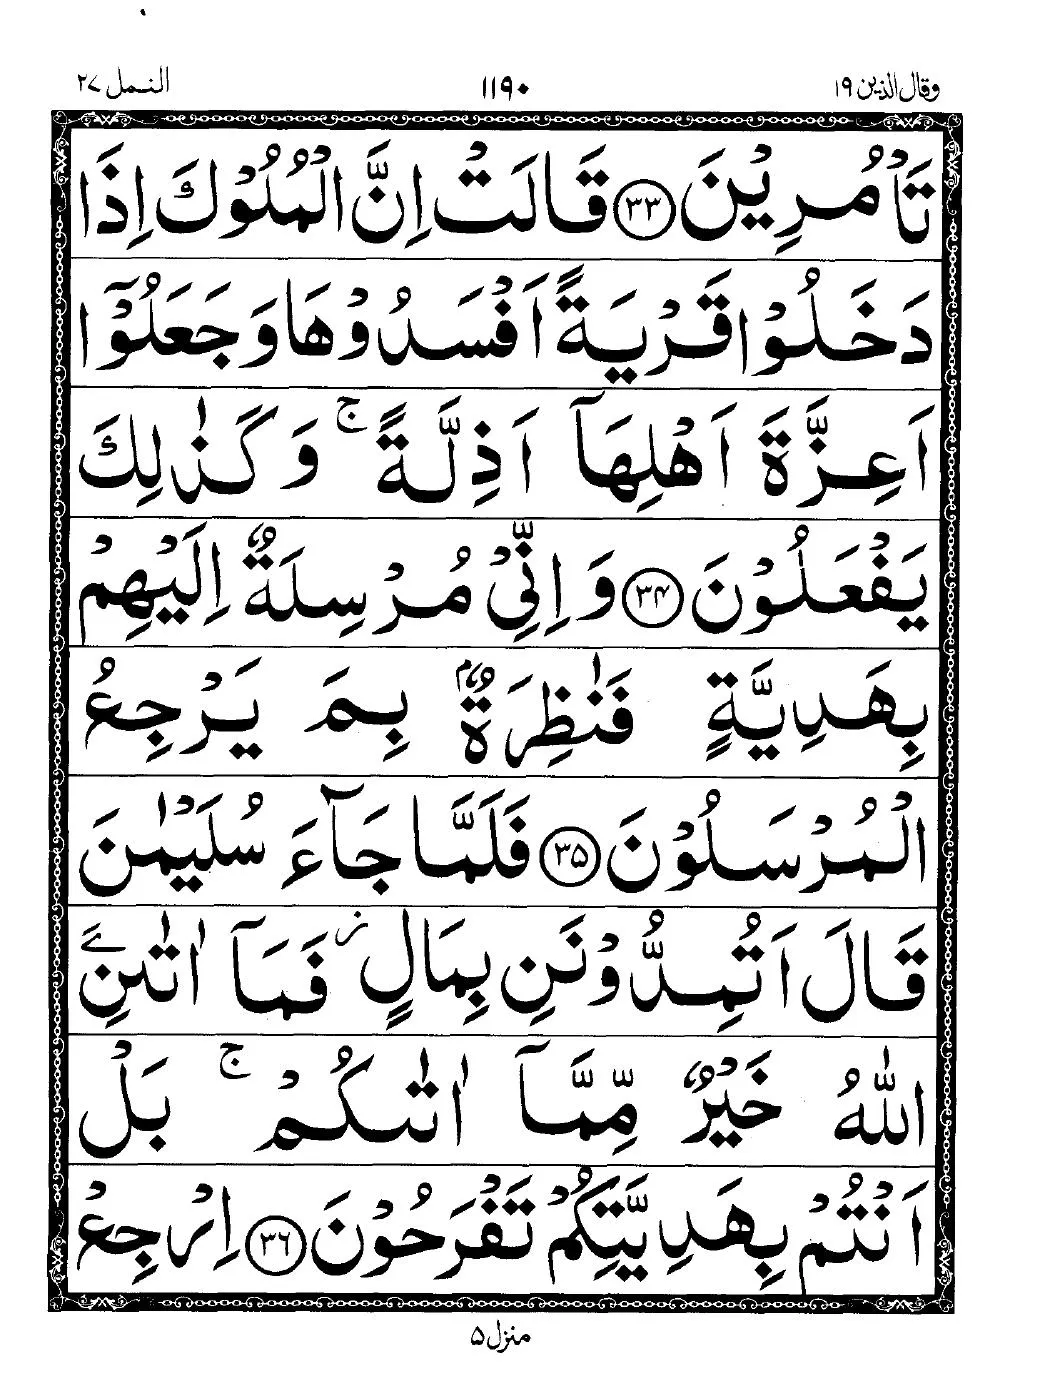 وقال الذین ١٩ ١١٩٠ النمل ٢٧
تَاْمُرِیْنَ ﴿٣٣﴾ قَالَتْ اِنَّ الْمُلُوْكَ اِذَا
دَخَلُوْا قَرْیَةً اَفْسَدُوْهَا وَجَعَلُوْۤا
اَعِزَّةَ اَهْلِهَاۤ اَذِلَّةً ۚ وَكَذٰلِكَ
یَفْعَلُوْنَ ﴿٣۴﴾ وَاِنِّیْ مُرْسِلَةٌ اِلَیْهِمْ
بِهَدِیَّةٍ فَنٰظِرَةٌۢ بِمَ یَرْجِعُ
الْمُرْسَلُوْنَ ﴿٣۵﴾ فَلَمَّا جَآءَ سُلَیْمٰنَ
قَالَ اَتُمِدُّوْنَنِ بِمَالٍ ز فَمَاۤ اٰتٰىنِ ےَ
اللّٰهُ خَیْرٌ مِّمَّاۤ اٰتٰىكُمْ ۚ بَلْ
اَنْتُمْ بِهَدِیَّتِكُمْ تَفْرَحُوْنَ ﴿٣٦﴾ اِرْجِعْ
منزل ۵